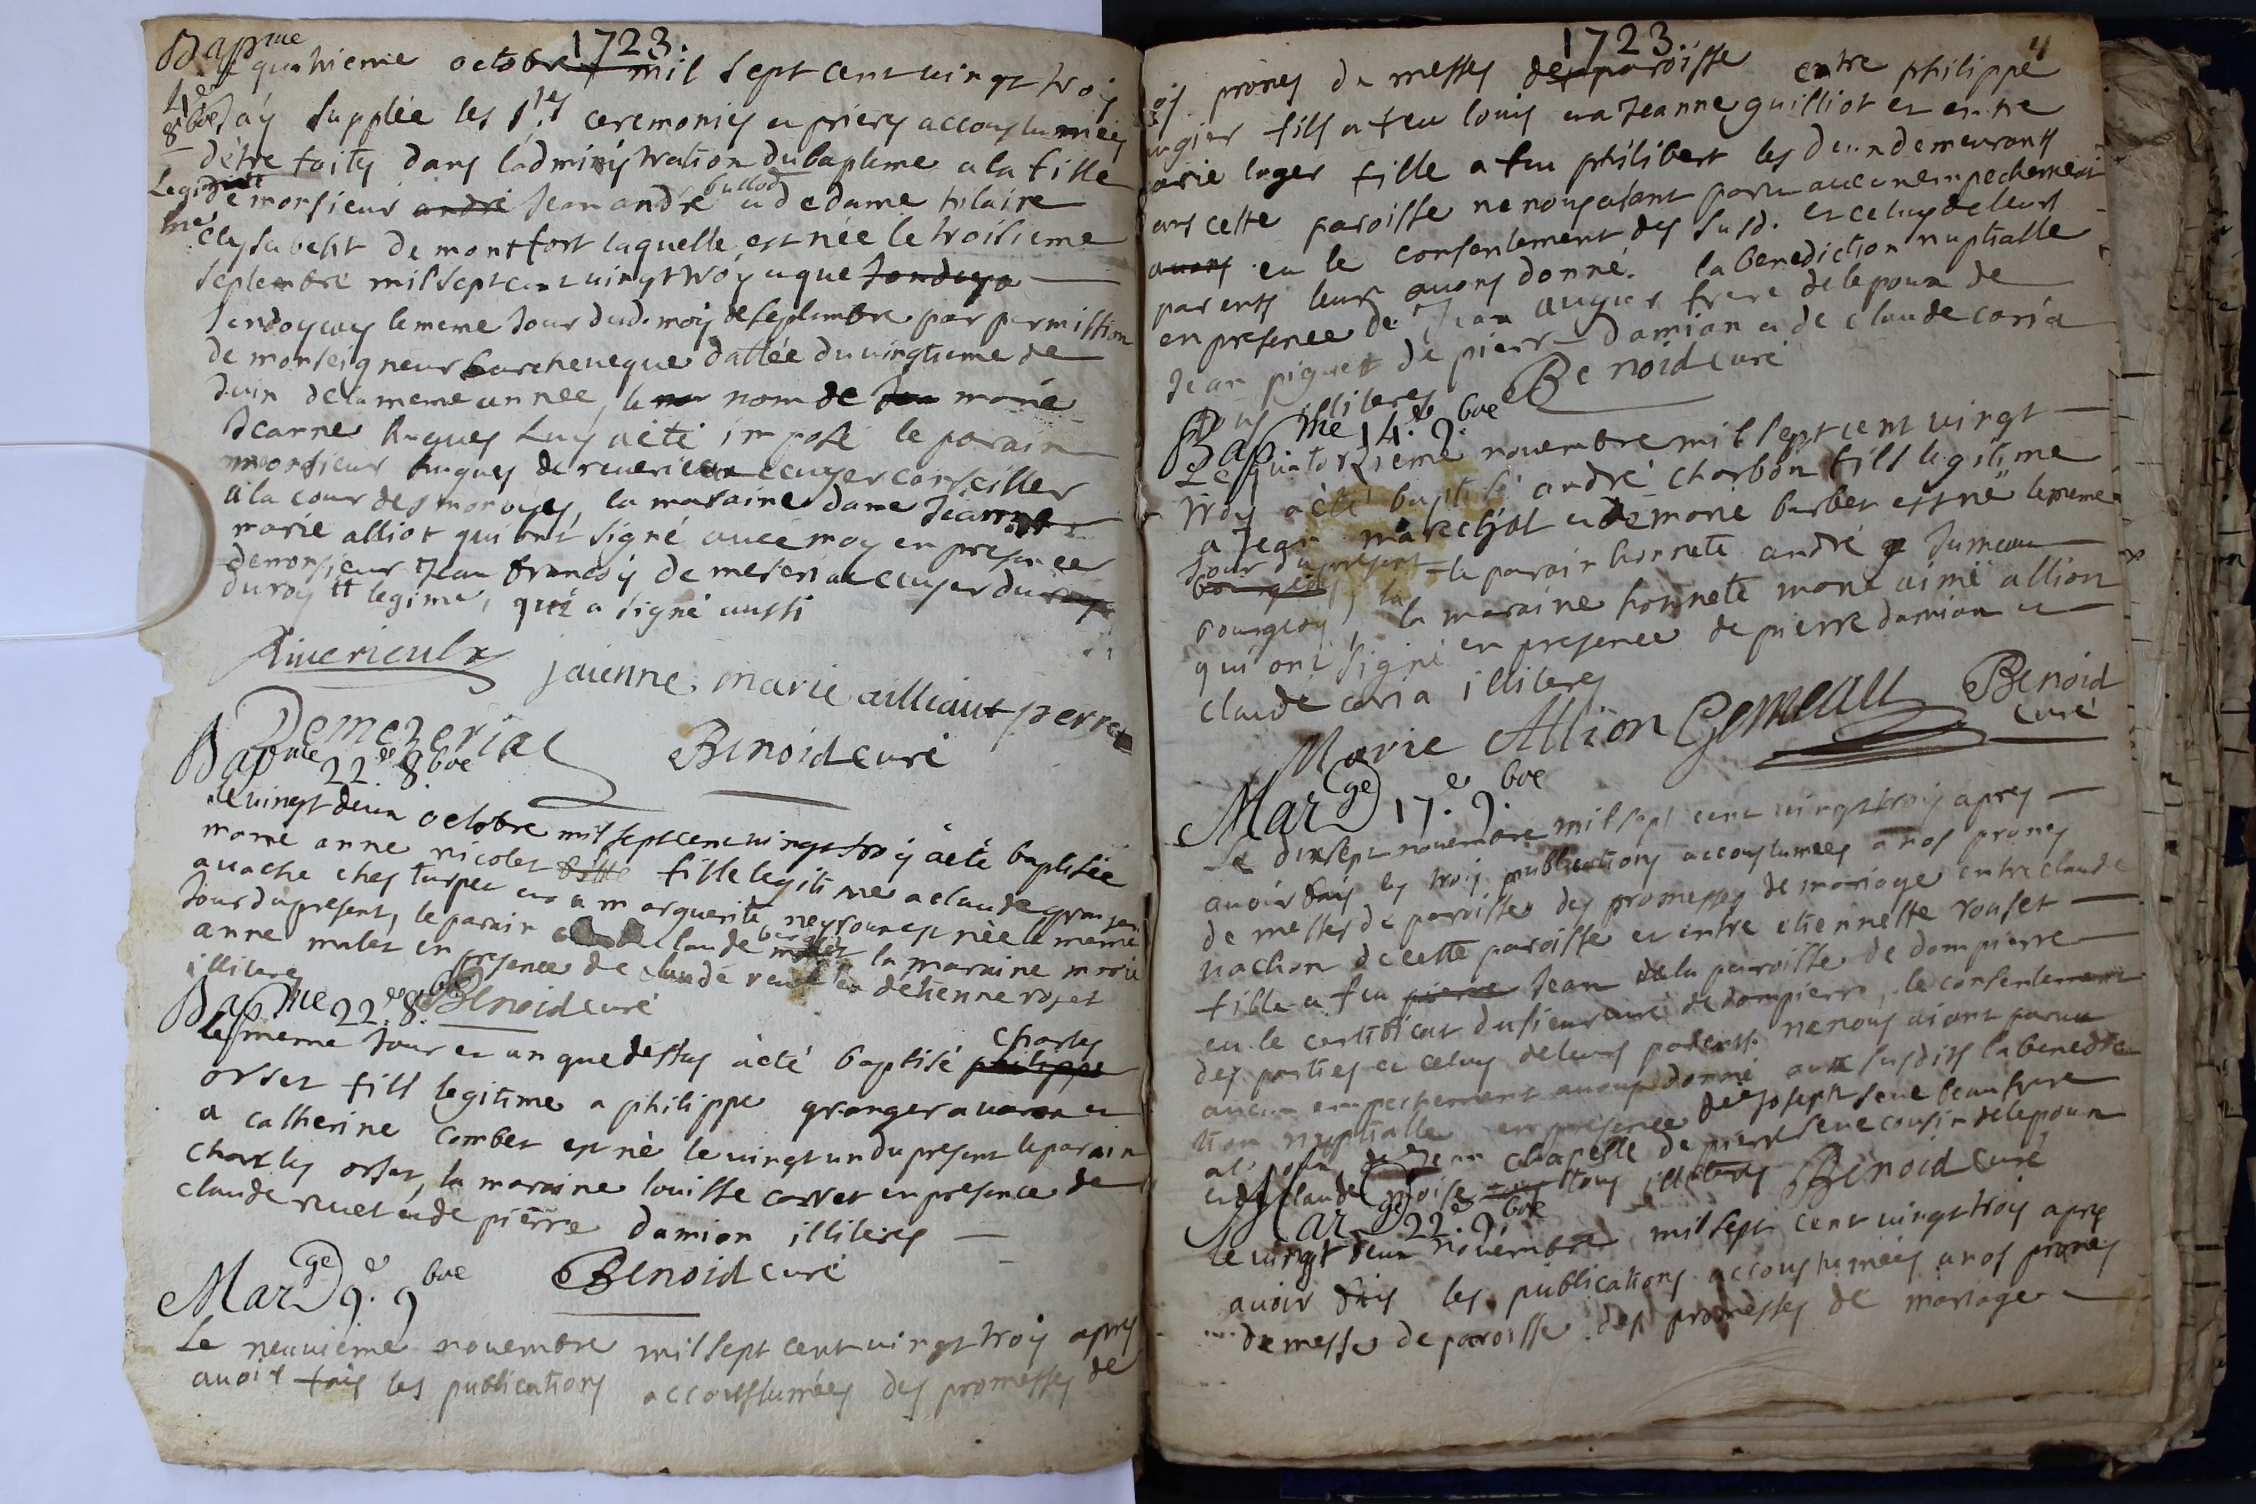 1723.
Bapme
Le quatrieme octobre mil sept cent vingt trois
4e 8bre
J'ay supplée les Stes ceremonies et prieres accoustumées
d'etre faites dans l'administration du bapteme a la fille
Legitime
de monsieur andré Jean andré bullod et de dame hilaire
elysabeht de montfort laquelle est née le troisieme
septembre mil sept cent vingt trois et que
J'endoyay le meme Jour dud. mois de septembre par permission
de monseigneur l'archeveque dattée du vingtieme de
Juin de la meme année, le nom de marie
Jeanne hugues luy a été imposé le parain
monsieur hugues de riuerieux ecuyer conseiller
a la cour des monoyes, la maraine dame Jeanne
marie alliot qui ont signé avec moy en presence
de monsieur Jean francois de meseriac ecuyer
du roy tt legime, qui a signé aussi
Riuerieulx
jaienne marie ailliaut perret
Demezeriac
Benoid curé
Bapme 22e 8bre
le vingt deux octobre mil sept cent vingt trois a été baptisée
marie anne nicolet fille legitime a claude granger
auache ches turpet et a marguerite neyroun est née le meme
Jour du present, le parain claude la maraine marie
anne mulet en presence de claude ruet et d'etienne roset
illiteres
Benoid curé
Bapme 22e 8bre
le meme Jour et an que dessus a été baptisé philippe charles
orset fils legitime a philippe granger auaron et
a catherine combet est né le vingt un du present le parain
charles orset, la maraine louisse carret en presence de
claude ruet et de pierre damion illiteres
Benoid curé
Marge 9e 9bre
Le neuuieme nouembre mil sept cent vingt trois apres
auoir fais les publications accoustumées des promesses de
1723.
4
nos prones de messes de paroisse entre philippe
augier fils a feu louis et a Jeanne guilliot et entre
marie loger fille a feu philibert les deux demeurants
dans cette paroisse ne nous aiant paru aucun empechement
auons eu le consentement des susd. et celuy de leurs
parents leurs auons donné la benediction nuptialle
en presence de Jean augier frere de lepoux de
Jean piguet de pierre damian et de claude caria
tous illiteres
Benoid curé
Bapme 14e 9bre
Le quatorzieme novembre mil sept cent vingt
trois a été baptisé andré charbon fils legitime
a Jean marechal et de marie barbet est né le meme
Jour du present le parain honnete andré Jumeau
bourgeois
bourgeois, la maraine honnete marie aimé allion
qui ont signé en presence de pierre damian et
claude caria illiteres
Marie Allion
Gemeau
Benoid curé
Marge 17e 9bre
Le dixsept nouembre mil sept cent vingt trois apres
auoir fais les trois publications accoustumées a nos prones
de messes de paroisse des promesses de mariage entre claude
uachon de cette paroisse et entre etiennette rouset
fille a feu pierre Jean de la paroisse de dompierre
eu le certificat du sieur curé de dompierre, le consentement
des parties et celuy de leurs parents ne nous aiant paru
aucun empechement auons donné aux susdits la benedic-
tion nuptialle en presence de Joseph seue beaufrere
de Jean chapelle de pierre seue cousin de lepoux
et de claude moise tous illiteres
Benoid Curé
Marge 22e 9bre
le vingt deux nouembre mil sept cent vingt trois apres
auoir fais les publications accoustumées a nos prones
de messe de paroisse des promesses de mariage